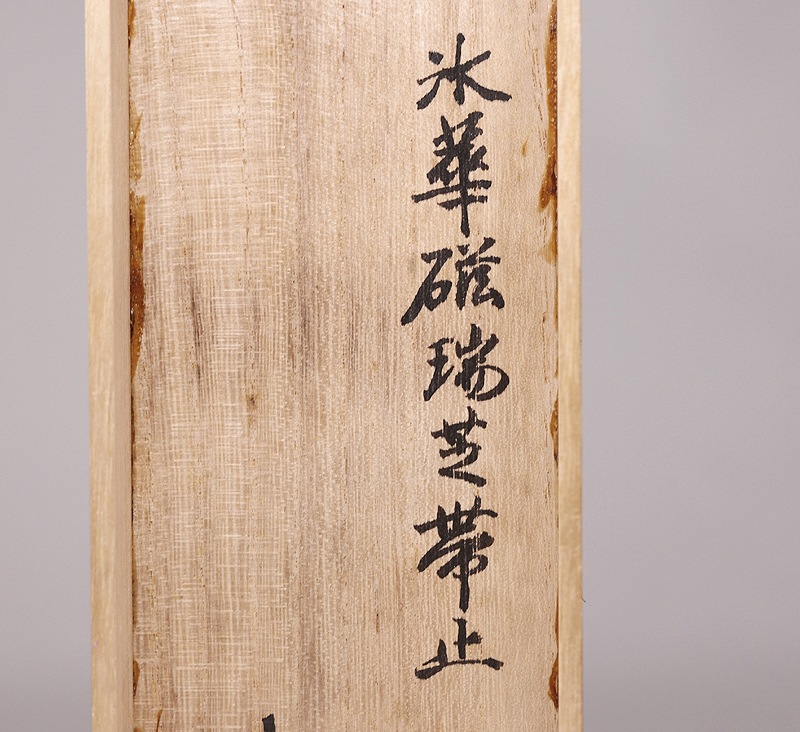 氷華磁瑞芝帯止